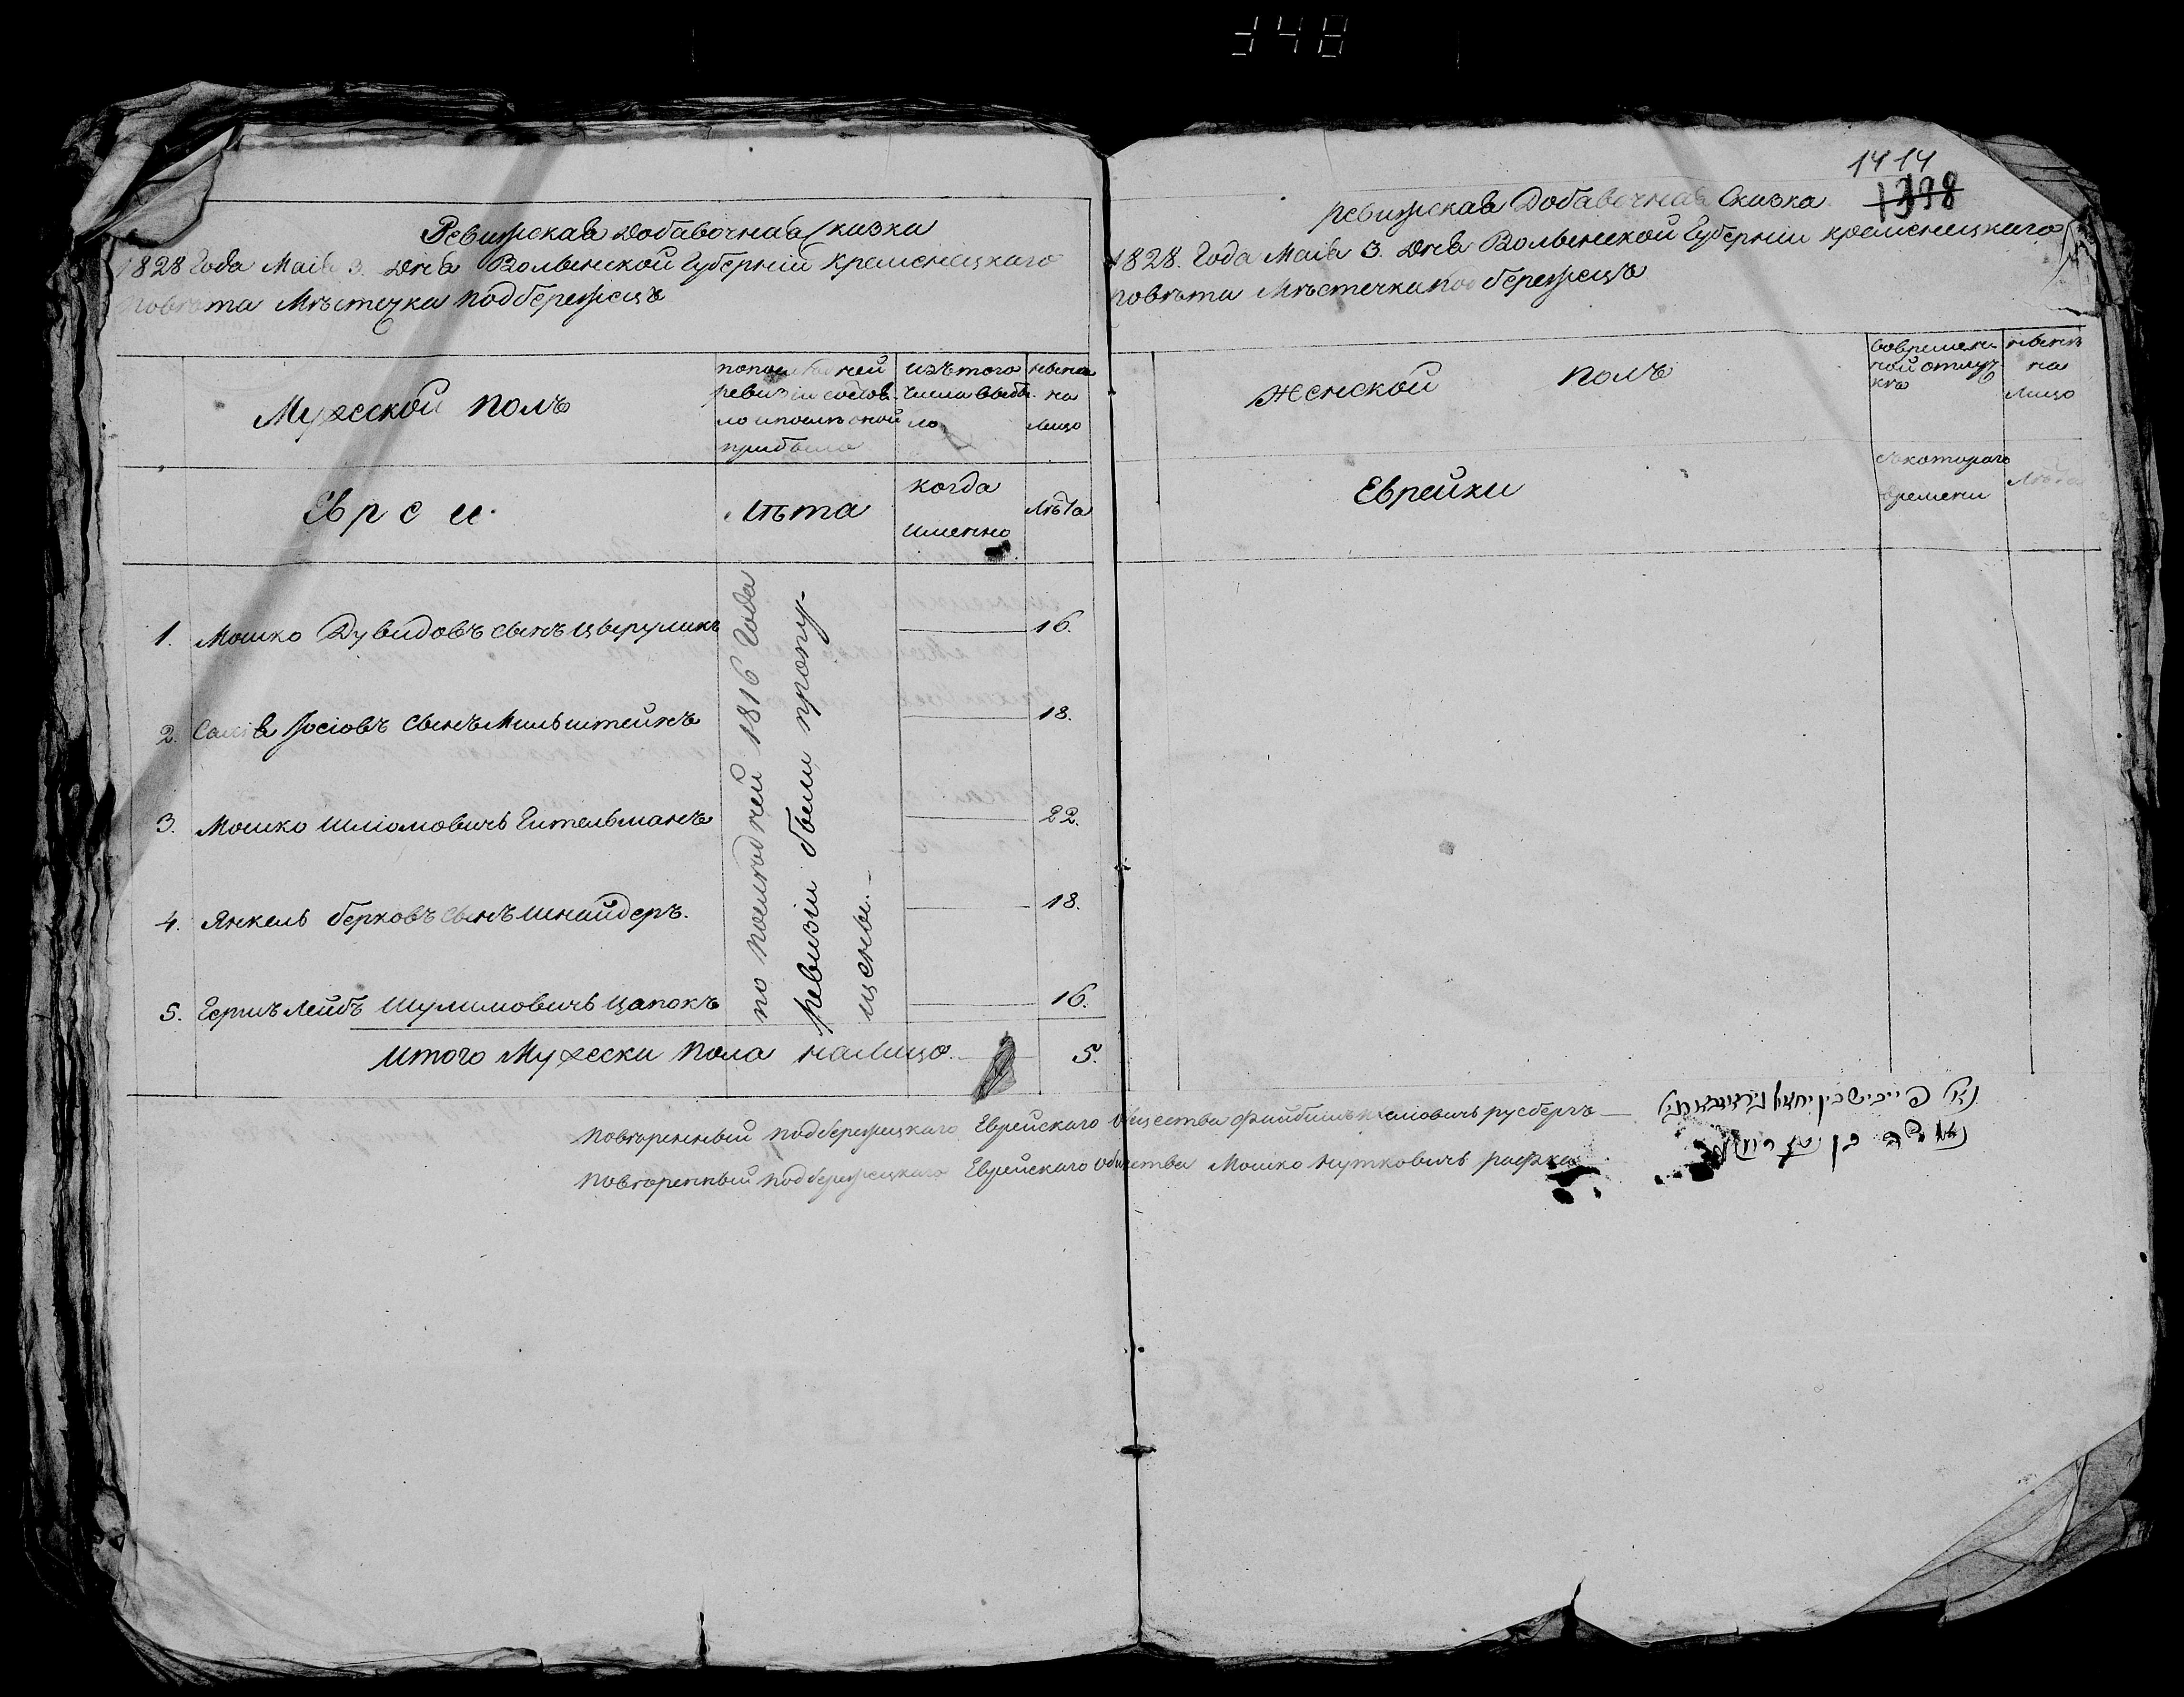 348
1414
1398
Ревижская Добавочная Сказка
1828 Года Маія 3. Дня Волынской Губерніи Кременецкаго
Повѣта Мѣстечка Подбережецъ
Мужеской Полъ
по последней ревизіи состояло и после оной прибыло
изъ того числа выбыло
нынѣ на лицо
Евреи
Лѣта
когда именно
Лѣта
1. Мошко Дувидовъ сынъ 16.
2. Іосіовъ сынъ Мильштейнъ 18.
3. Мошко Шліомовичъ Гительманъ 22.
4. Янкель Берковъ сынъ Шнайдеръ. 18.
5. Гершъ Лейбъ Шулимовичъ Цапокъ 16.
по последней 1816 Года
ревизіи были пропу-
щены.
Итого Мужески Пола на Лицо. 5.
Ревижская Добавочная Сказка
1828. Года Маія 3. Дня Волынской Губерніи Кременецкаго
Повѣта Мѣстечка Подбережецъ
Женской Полъ
во временной отлучкѣ
нынѣ на лицо
Еврейки
съ котораго времени
Лѣта
Повѣренный Подбережецкаго Еврейскаго Общества Файбишъ русбергъ
Повѣренный Подбережецкаго Еврейскаго Общества Мошко Нутковичъ